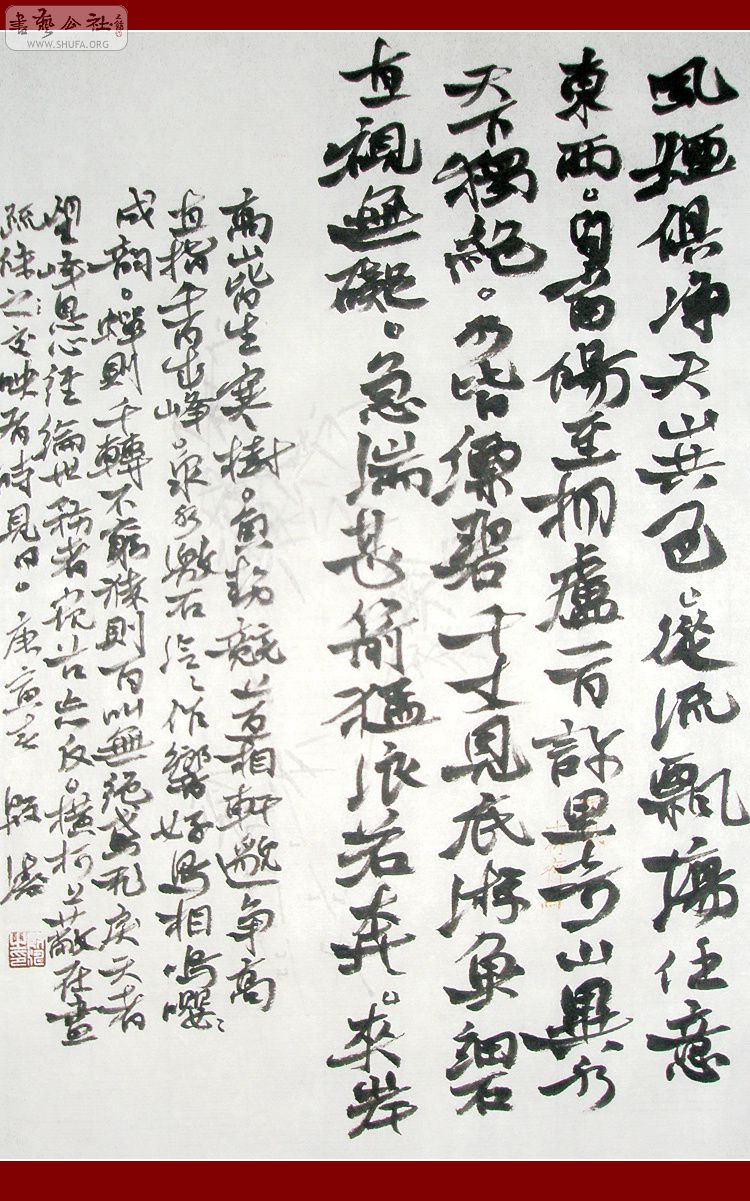 書藝公社
WWW.SHUFA.ORG
風煙俱净天山共色從流飄蕩任意
東西。自富陽至桐廬一百許里奇山異水
天下獨絕。水皆縹碧千丈見底游魚細石
直視無礙。急湍甚箭猛浪若奔。夾岸
高山皆生寒樹。負勢競上互相軒邈争高
直指千百峰。泉水激石泠泠作響好鳥相鳴嚶嚶
成韵。蟬則千轉不窮猿則百叫無絕鳶飛戾天者
望峰息心經綸世務者窺谷忘反。橫柯上蔽在晝
疏條交映有時見日。庚寅春